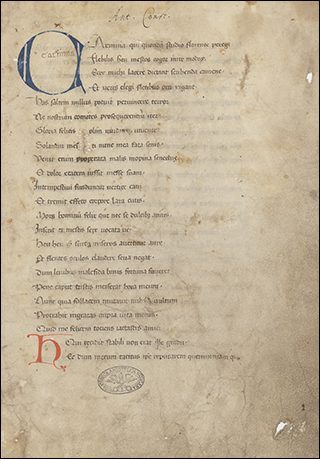 Carmina
CArmina qui quondam studio florente peregi
Flebilis heu mestos cogor inire modos
Ecce michi lacere dictant scribenda camene
Et veris elegi fletibus ora rigant
Has saltem nullus potuit pervincere terror
Ne nostrum comites prosequerentur iter
Gloria felicis olim viridisque iuvente
Solantur mesti nunc mea fata senis
Venit enim properata malis inopina senectus
Et dolor etatem iussit inesse suam
Intempestivi funduntur vertice cani
Et tremit effeto corpore laxa cutis
Mors hominum felix que nec se dulcibus annis
Inserit et mestis sepe vocata venit
Heu heu surda miseros avertitur aure
Et flentes oculos claudere seva negat
Dum levibus malefida bonis fortuna faveret
Pene caput tristis merserat hora meum
Nunc quia fallacem mutavit vultum
Protrahit ingratas impia vita moras
Quid me felicem totiens iactastis amici
Qui cecidit stabili non erat ille gradu
Hec dum mecum tacitus ipse reputarem